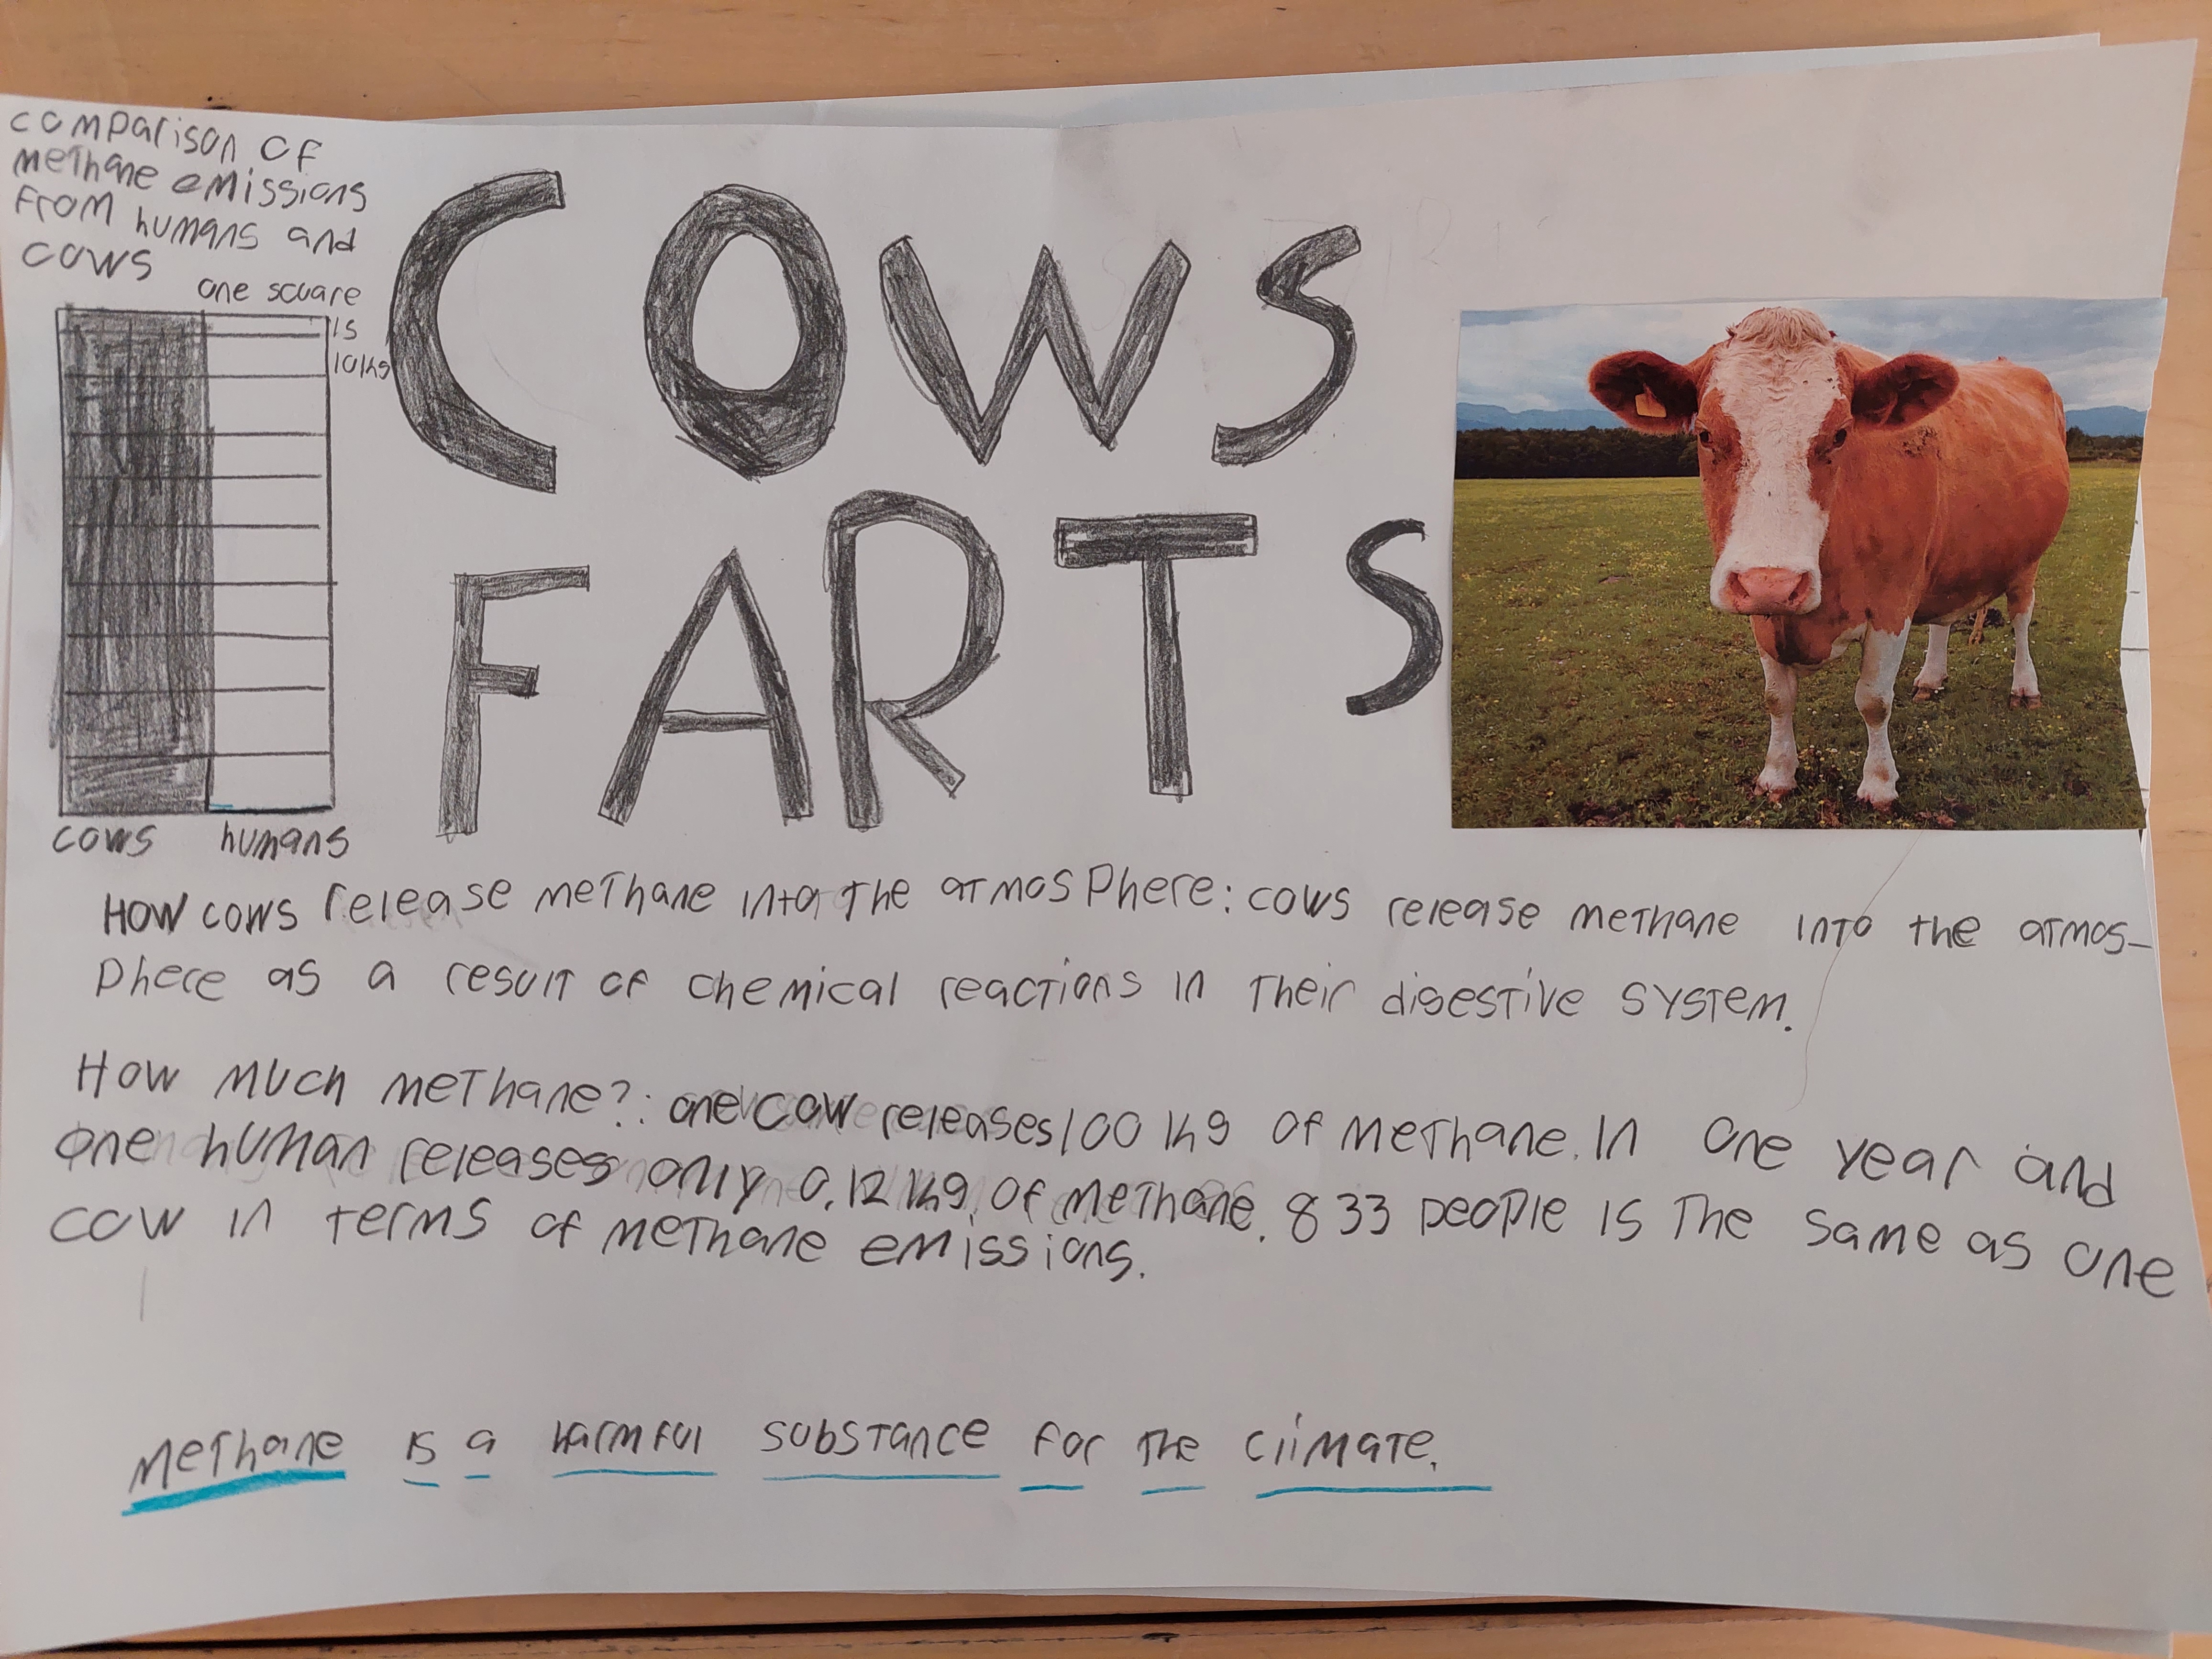 comparison of
methane emissions
from humans and
cows
one scuare
is
10kg
COWS
FARTS
cows humans
How cows release methane into the atmosphere: cows release methane into the atmos-
phere as a result of chemical reactions in their digestive system.
How much methane?: one cow releases 100 kg of methane. In one year and
one human releases only 0,12 kg of methane. 833 people is the same as one
cow in terms of methane emissions.
Methane is a harmful substance for the climate.